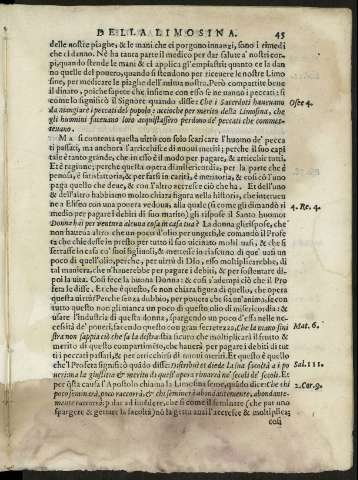 DELLA LIMOSINA. 45
delle nostre piaghe, & le mani che ci porgono innanzi, sono i rimedi
che ci danno. Nè ha tanta parte il medico per dar salute a' nostri cor-
pi, quando stende le mani & ci applica gl'empiastri; quanto ce la dan
no quelle del pouero, quando si stendono per riceuere le nostre Limo
sine, per medicare le piaghe dell'anima nostra. Però compartite bene
il dinaro, poiche sapete che insieme con esso se ne uanno i peccati: si
come lo significò il Signore quando disse: Che i Sacerdoti haueuano
da mangiare i peccati del popolo: accioche per merito della Limosina, che
gli huomini faceuano loro acquistassero perdono de' peccati che commet-
teuano.
Osee 4.
Ma si contenta questa uirtù con solo scaricare l'huomo de' pecca
ti passati, ma anchora l'arricchisce di nuoui meriti; perche il suo capi
tale è tanto grande, che in esso è il modo per pagare, & arricchir tutti.
Et è ragione; perche questa opera di misericordia, per la parte che è
penosa, è satisfattoria, & per farsi in carità, è meritoria, & così cō l'uno
paga quello che deue, & con l'altro accresce ciò che ha. Et dell'uno
& dell'altro habbiamo molto chiara figura nella historia, che interuen
ne a Eliseo con una pouera uedoua, alla quale (si come gli dimandò ri
medio per pagare i debiti di suo marito) gli rispose il Santo huomo:
Donna hai per uentura alcuna cosa in casa tua? La donna gli rispose, che
4. Re. 4.
non haueua altro che un poco d'olio per ungersi, le comandò il Profe
ta che chiedesse in presto per tutto il suo uicinato molti uasi, & che si
serrasse in casa co' suoi figliuoli, & mettesse in ciascuno di que' uasi un
poco di quell'olio, perche, per uirtù di Dio, esso moltiplicarebbe, di
tal maniera, che n'hauerebbe per pagare i debiti, & per sostentare di-
poi la uita. Così fece la buona Donna: & così s'adempì ciò che il Pro
feta le disse. Et che è questo, se non chiara figura di quello, che opera
questa uirtù? Perche senza dubbio, per pouera che sia un'anima, se con
tutto questo non gli manca un poco di questo olio di misericordia; &
usare l'industria di questa donna, spargendo un poco d'esso nelle ne-
cessità de' poueri, facendo questo con gran secretezza, Che la mano sini
stra non sappia ciò che fa la destra: stia sicuro che multiplicarà il frutto &
Mat. 6.
merito di questo compartimēto, che hauerà per pagare i debiti di tut
ti i peccati passati, & per arricchirsi di nuoui meriti. Et questo è quello
che'l Profeta significò quādo disse: Distribuì et diede la sua facultà a i po
ueri: ma la giustitia & merito di quest'opera rimarrà ne' secoli de' secoli. Et
Sal. 111.
per q̄sta causa l'Apostolo chiama la Limosina seme, quādo dice: Che chi
2. Cor. 9.
poco seminerà, poco raccorrà: & chi seminerà abondantemente, abondante-
mente raccorrà: p dar ad intēdere, che si come il seminare (che par uno
spargere & gettare la facoltà) nō la getta anzi l'accresce & moltiplica;
così